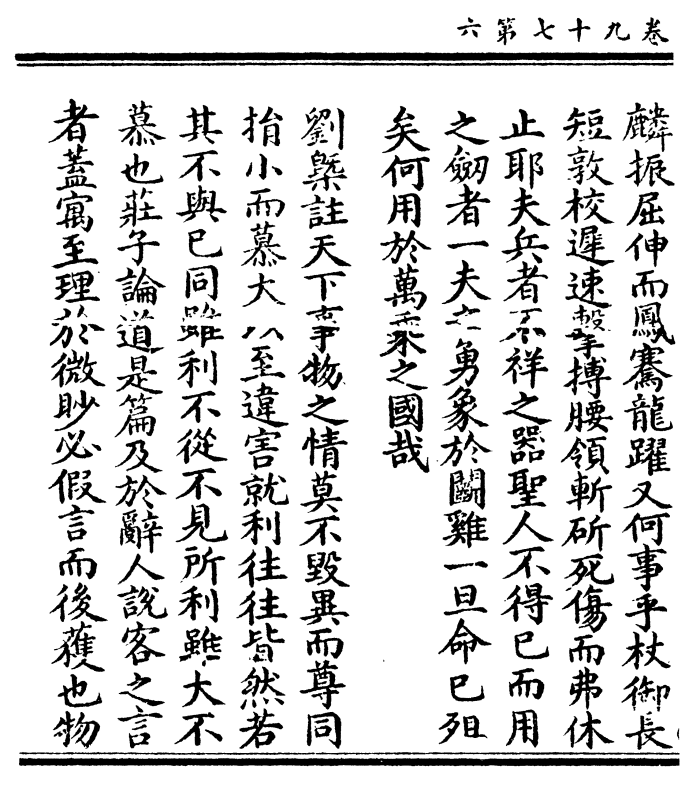 卷九十七第六
麟振屈伸而鳳騫龍躍又何事乎杖御長
短敦校遲速擊搏腰領斬斫死傷而弗休
止耶夫兵者不祥之器聖人不得已而用
之劒者一夫之勇象於鬭雞一旦命已殂
矣何用於萬乘之國哉
劉槩註天下事物之情莫不毀異而尊同
指小而慕大以至違害就利往往皆然若
其不與已同雖利不從不見所利雖大不
慕也莊子論道是篇及於辭人說客之言
者蓋寓至理於微眇必假言而後蒦也物